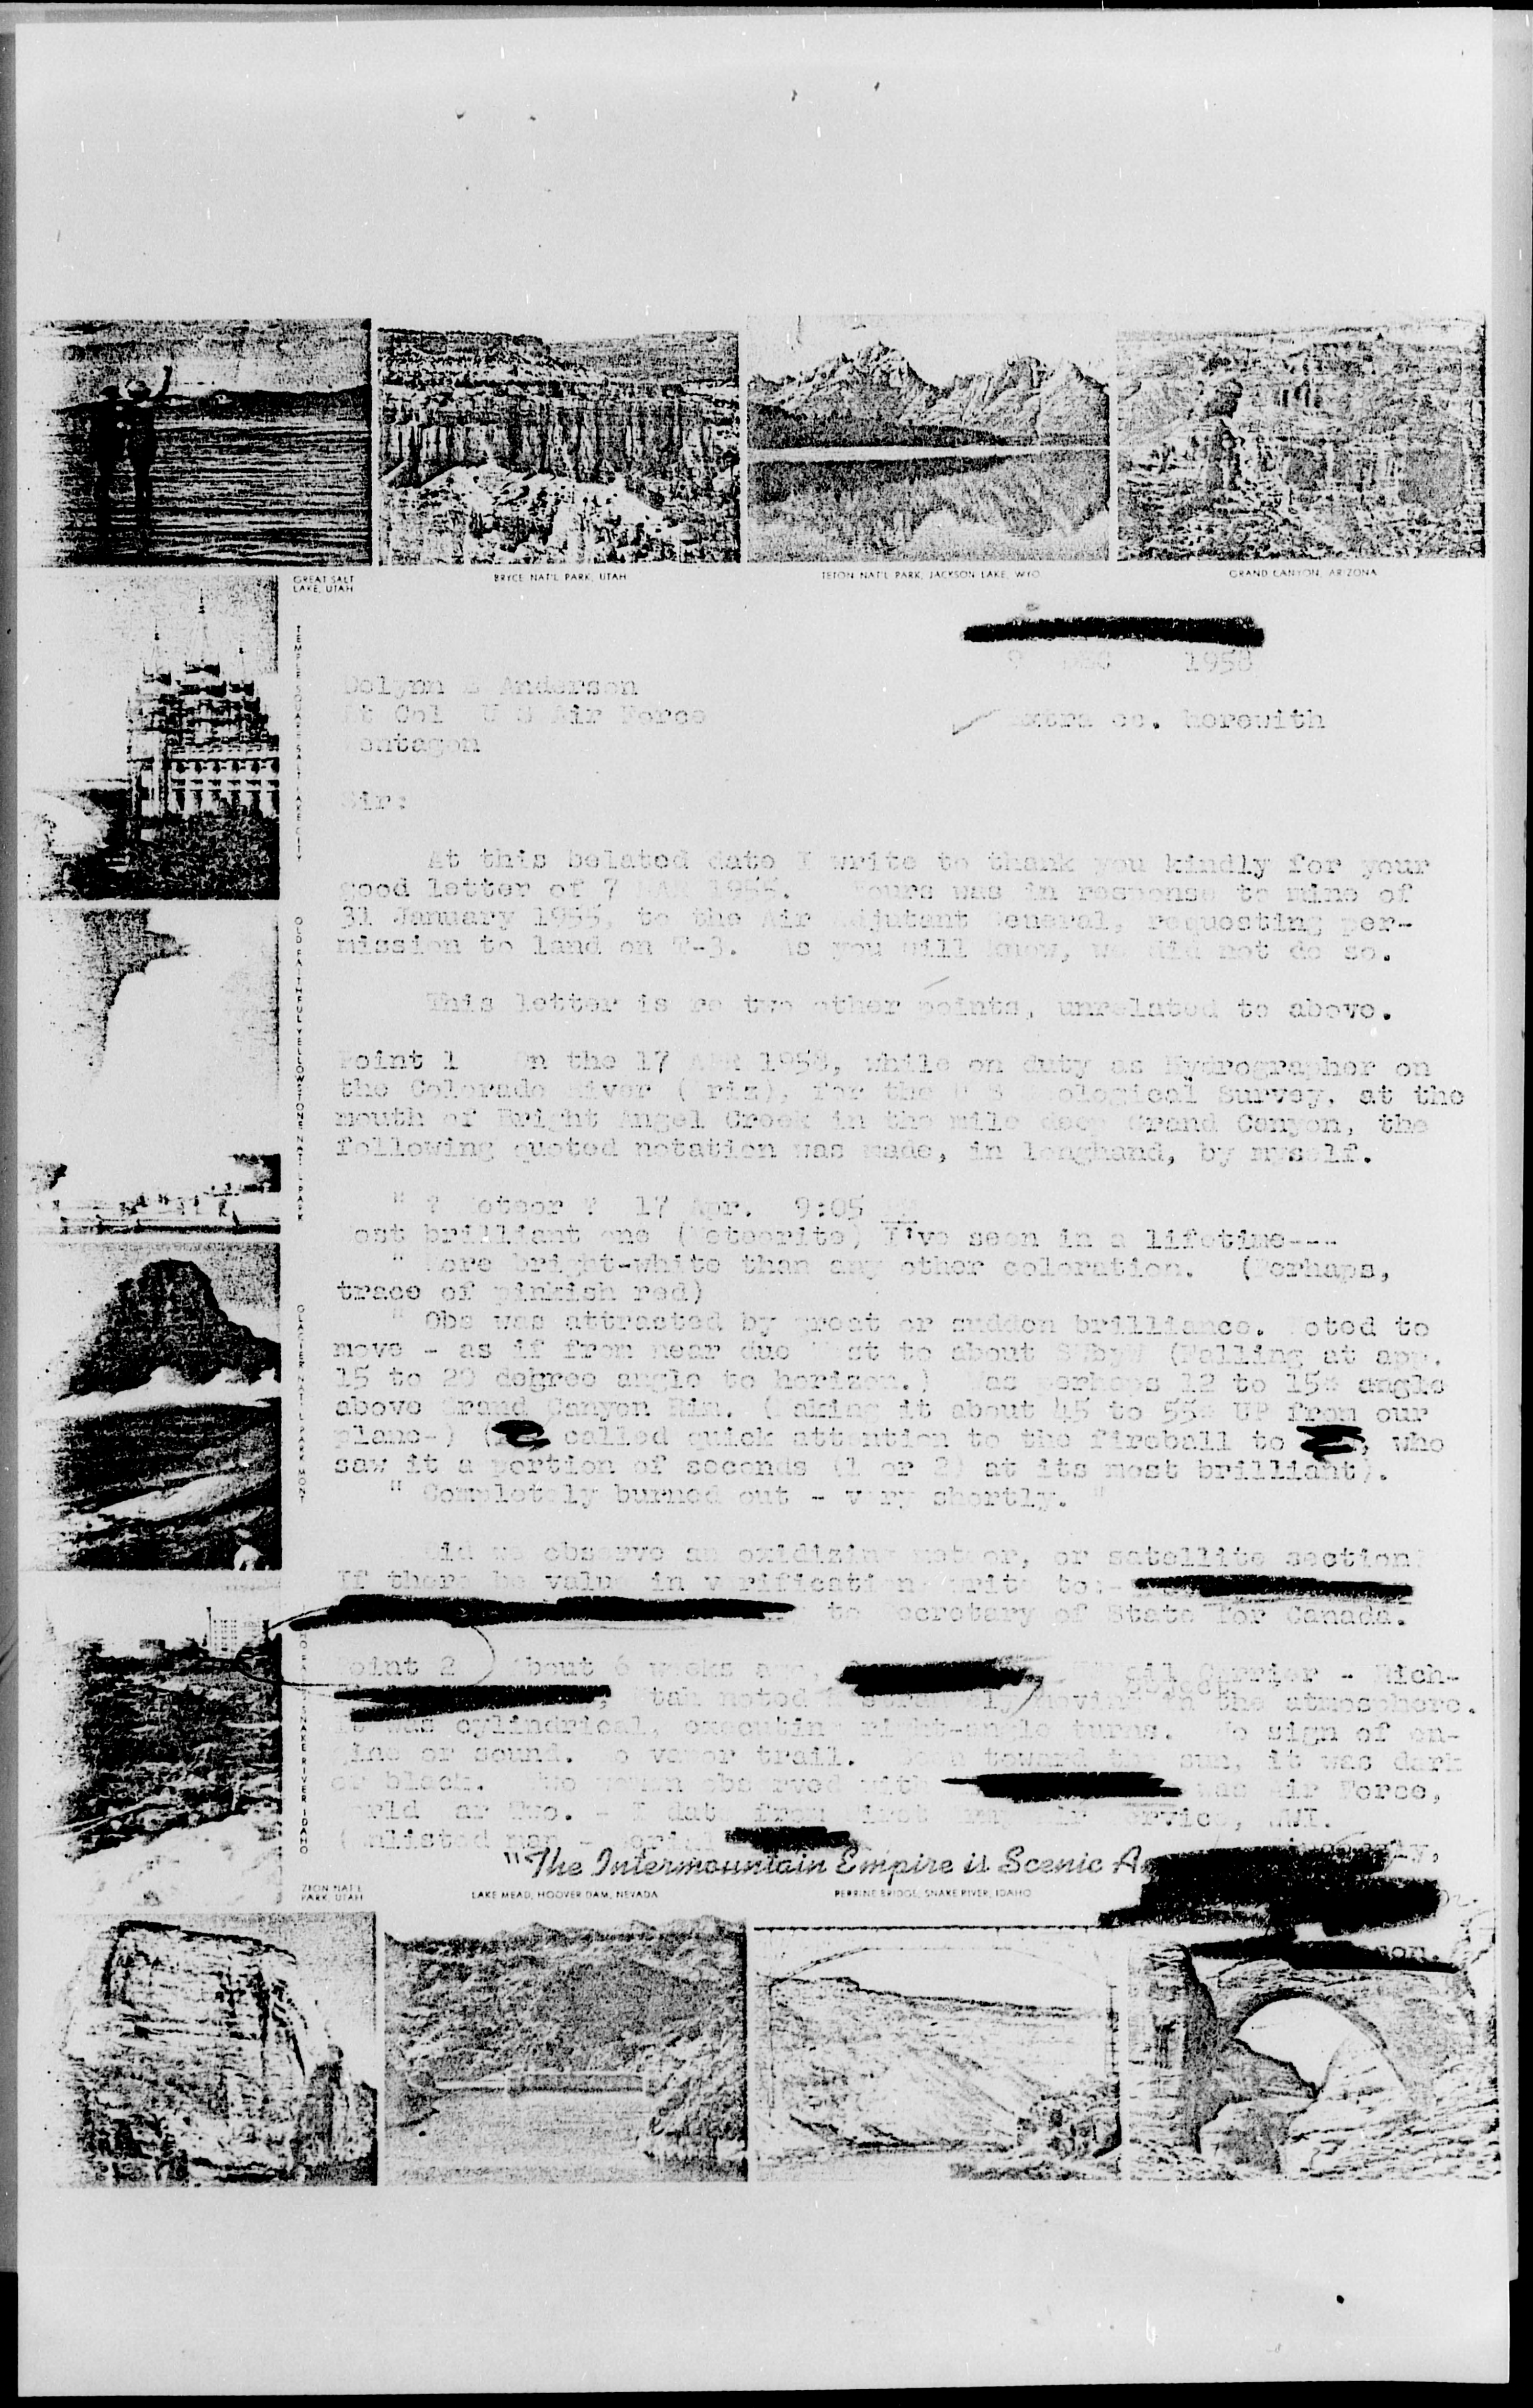 GREAT SALT
LAKE, UTAH
BRYCE NAT'L PARK, UTAH
TETON NAT'L PARK, JACKSON LAKE, WYO
GRAND CANYON, ARIZONA
TEMPLE SQUARE SALT LAKE CITY
OLD FAITHFUL YELLOWSTONE NAT'L PARK
GLACIER NAT'L PARK MONT
SNAKE RIVER IDAHO
9 DEC 1958
Delynn E Anderson
Lt Col U S Air Force
Pentagon
Extra cc. herewith
Sir:
At this belated date I write to thank you kindly for your
good letter of 7 MAR 1955. Yours was in response to mine of
31 January 1955, to the Air Adjutant General, requesting per-
mission to land on T-3. As you will know, we did not do so.
This letter is re two other points, unrelated to above.
Point 1 On the 17 APR 1958, while on duty as Hydrographer on
the Colorado River (Ariz), for the U S Geological Survey, at the
mouth of Bright Angel Creek in the mile deep Grand Canyon, the
following quoted notation was made, in longhand, by myself.
" ? Meteor ? 17 Apr. 9:05
Most brilliant one (Meteorite) I've seen in a lifetime---
" More bright-white than any other coloration. (Perhaps,
trace of pinkish red)
" Obs was attracted by great or sudden brilliance. Noted to
move - as if from near due to about SWbyW (Falling at app.
15 to 20 degree angle to horizon.) Was perhaps 12 to 15° angle
above Grand Canyon Rim. (Making it about 45 to 55° UP from our
plane-) ( called quick attention to the fireball to , who
saw it a portion of seconds (1 or 2) at its most brilliant).
" Completely burned out - very shortly. "
Did we observe an oxidizing meteor, or satellite section?
If there be value in verification write to:-
to Secretary of State for Canada.
Point 2 About 6 weeks ago, Mail Carrier - Rich-
, Utah noted moving in the atmosphere.
It was cylindrical, executing right-angle turns. No sign of en-
gine or sound. No vapor trail. Seen toward the sun, it was dark
or black. Two women observed with was Air Force,
World War Two. - I date from First Service, WWI.
(Enlisted man - Serial
"The Intermountain Empire is Scenic
ZION NAT'L
PARK, UTAH
LAKE MEAD, HOOVER DAM, NEVADA
PERRINE BRIDGE, SNAKE RIVER, IDAHO